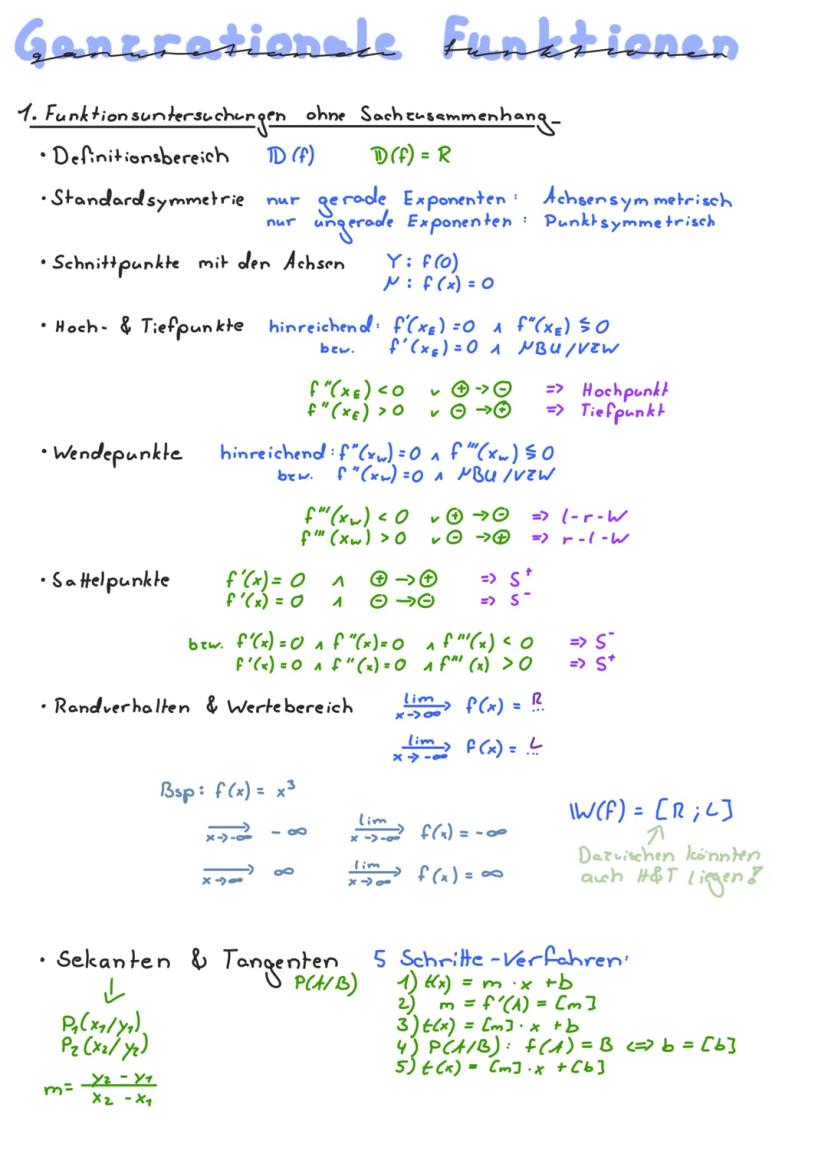 Ganzrationale Funktionen
1. Funktionsuntersuchungen ohne Sachzusammenhang
• Definitionsbereich 𝔻(f) 𝔻(f) = R
• Standardsymmetrie nur gerade Exponenten: Achsensymmetrisch
nur ungerade Exponenten: Punktsymmetrisch
• Schnittpunkte mit den Achsen Y: f(0)
N: f(x) = 0
• Hoch- & Tiefpunkte hinreichend: f'(x_E) = 0 ∧ f''(x_E) ≶ 0
bzw. f'(x_E) = 0 ∧ NBU/VZW
f''(x_E) < 0 ∨ ⊕ → ⊖ => Hochpunkt
f''(x_E) > 0 ∨ ⊖ → ⊕ => Tiefpunkt
• Wendepunkte hinreichend: f''(x_w) = 0 ∧ f'''(x_w) ≶ 0
bzw. f''(x_w) = 0 ∧ NBU/VZW
f'''(x_w) < 0 ∨ ⊕ → ⊖ => l-r-W
f'''(x_w) > 0 ∨ ⊖ → ⊕ => r-l-W
• Sattelpunkte f'(x) = 0 ∧ ⊕ → ⊕ => S⁺
f'(x) = 0 ∧ ⊖ → ⊖ => S⁻
bzw. f'(x) = 0 ∧ f''(x) = 0 ∧ f'''(x) < 0 => S⁻
f'(x) = 0 ∧ f''(x) = 0 ∧ f'''(x) > 0 => S⁺
• Randverhalten & Wertebereich lim x→∞ f(x) = R ...
lim x→-∞ f(x) = L ...
Bsp: f(x) = x³
x→-∞ -∞ lim x→-∞ f(x) = -∞
x→∞ ∞ lim x→∞ f(x) = ∞
𝕎(f) = [R ; L]
Dazwischen könnten
auch H&T liegen!
• Sekanten & Tangenten 5 Schritte-Verfahren:
P(A/B) 1) t(x) = m · x + b
2) m = f'(A) = [m]
P₁(x₁/y₁) 3) t(x) = [m] · x + b
P₂(x₂/y₂) 4) P(A/B): f(A) = B <=> b = [b]
m = (y₂ - y₁)/(x₂ - x₁) 5) t(x) = [m] · x + [b]